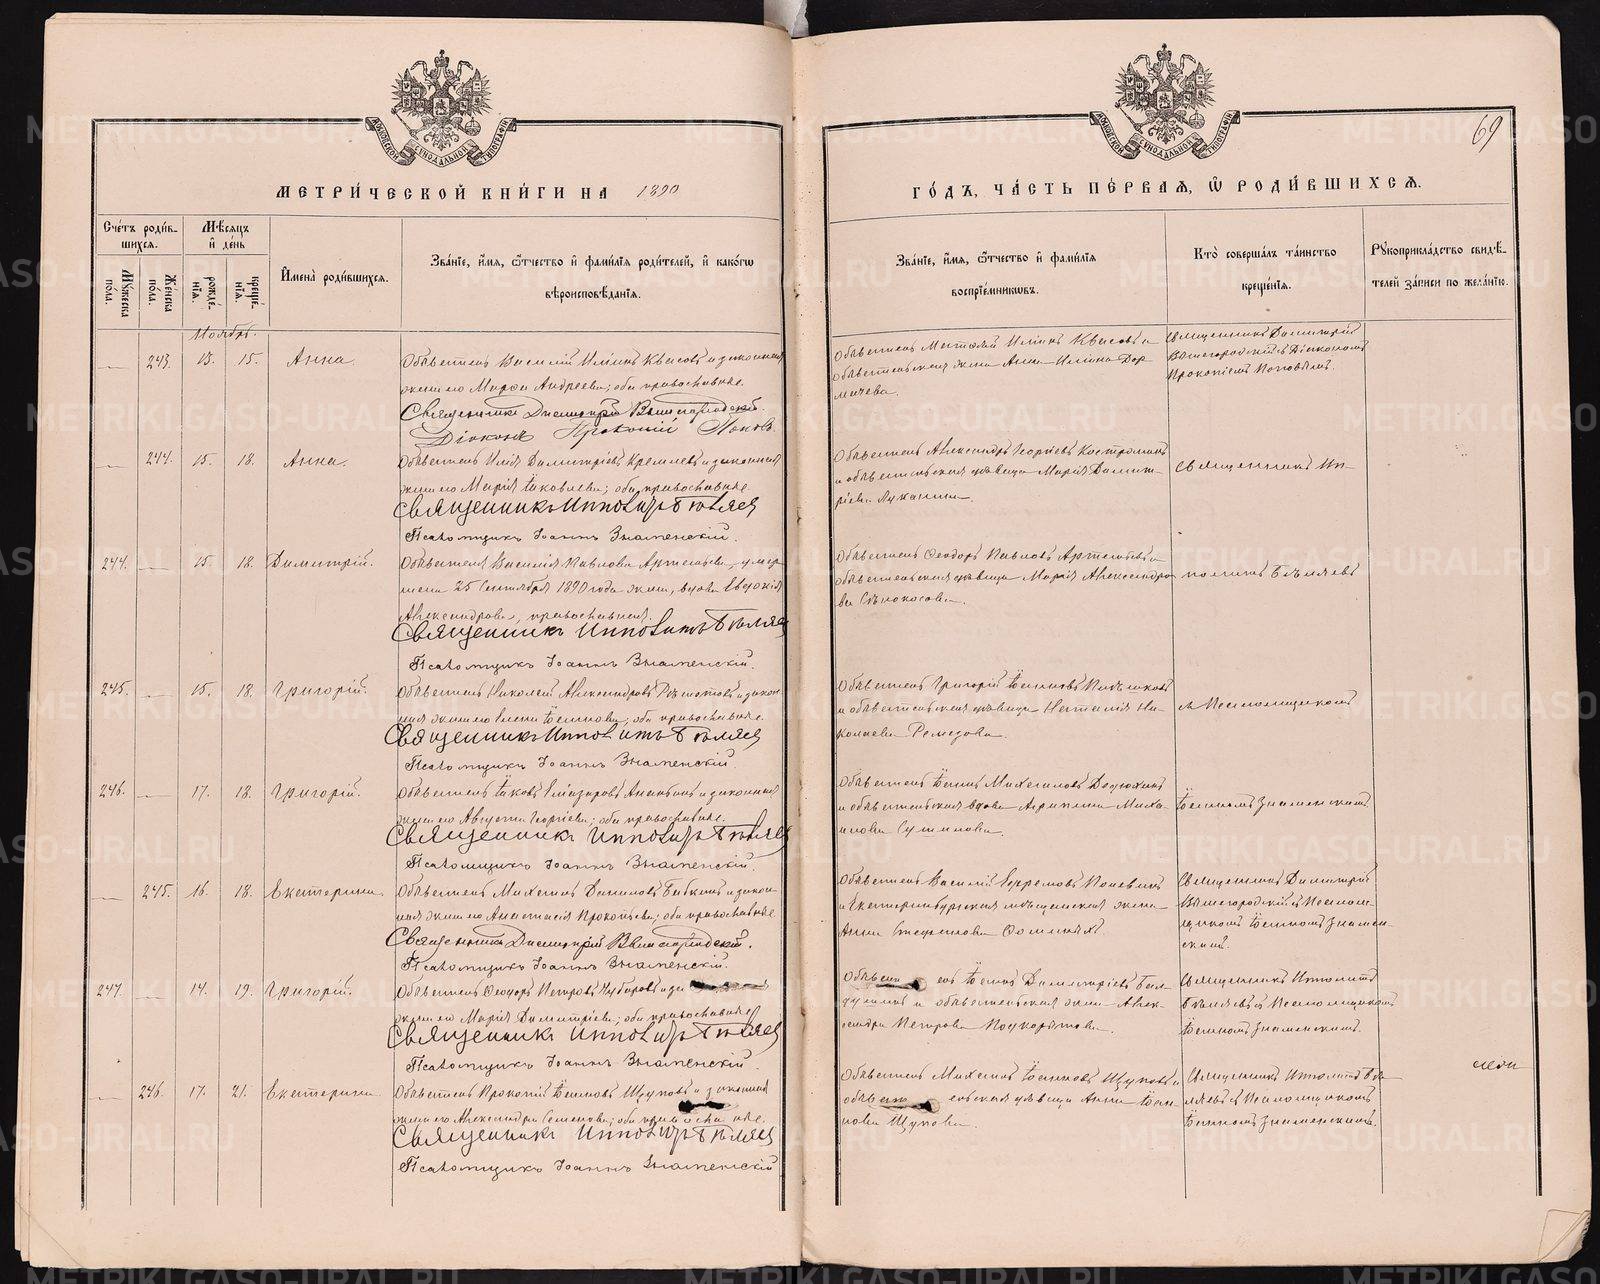 МЕТРИ́ЧЕСКОЙ КНИ́ГИ НА 1890
Сче́тъ роди́вшихся.
Мѣсяцъ и̂ де́нь
Мꙋжеска по́ла.
Же́нска по́ла.
рожде́нїѧ.
креще́нїѧ.
И̂мена̀ роди́вшихсѧ.
Зва́нїе, и̂́мѧ, ѻ҆́тчество и̂ фами́лїѧ роди́телей, и̂ како́гѡ
вѣроисповѣ́данїѧ.
Ноябрь.
243. 13. 15. Анна.
Обыватель Василій Илiинъ Квасовъ и законная
жена его Марѳа Андреева; оба православные.
Священникъ Димитрій Вышегородскій.
Діаконъ Прокопій Поповъ.
244. 15. 18. Анна.
Обыватель Илія Димитріевъ Кремлевъ и законная
жена его Марія Іаковлева; оба православные.
Священникъ Ипполитъ Бѣляев
Псаломщикъ Іоаннъ Знаменскій.
244. 15. 18. Димитрій.
Обывателя Василія Павлова Артемьева, умер
шаго 25 Сентября 1890 года жена, вдова Евдокія
Александрова, православная.
Священникъ Ипполитъ Бѣляев
Псаломщикъ Іоаннъ Знаменскій.
245. 15. 18. Григорій.
Обыватель Николай Александровъ и закон-
ная жена его Елена Іоаннова; оба православные.
Священникъ Ипполитъ Бѣляев
Псаломщикъ Іоаннъ Знаменскій.
246. 17. 18. Григорій.
Обыватель Іаковъ Елiазаровъ Ананьинъ и законная
жена его Августа Георгіева; оба православные.
Священникъ Ипполитъ Бѣляев
Псаломщикъ Іоаннъ Знаменскій.
245. 16. 18. Екатерина.
Обыватель Михаилъ Бабкинъ и закон-
ная жена его Анастасія Прокопьева; оба православные
Священникъ Димитрій Вышегородскій.
Псаломщикъ Іоаннъ Знаменскій.
247. 14. 19. Григорій.
Обыватель Ѳеодоръ Петровъ и за
жена его Марія Димитріева; оба православные
Священникъ Ипполитъ Бѣляев
Псаломщикъ Іоаннъ Знаменскій.
246. 17. 21. Екатерина.
Обыватель Прокопій Іоанновъ Щуповъ и законная
жена его Александра Семенова; оба православные.
Священникъ Ипполитъ Бѣляев
Псаломщикъ Іоаннъ Знаменскій
69
ГО́ДЪ, ЧА́СТЬ ПЕ́РВАѦ, Ѡ҆ РОДИ́ВШИХСѦ.
Зва́нїе, и̂́мѧ, ѻ҆́тчество и̂ фами́лїѧ
воспрїе́мникѡвъ.
Кто̀ соверша́лъ та́инство
креще́нїѧ.
Рꙋкоприкла́дство свидѣ́-
телей за́писи по жела́нїю.
Обыватель Матѳей Илiинъ Квасовъ и
обывательская жена Анна Илiина Дор
мачева.
Священникъ Димитрій
Вышегородскій съ Діакономъ
Прокопіемъ Поповымъ.
Обыватель Александръ Георгіевъ Костроминъ
и обывательская дѣвица Марія Димит-
ріева Луканина.
Священникъ Ип-
Обыватель Ѳеодоръ Павловъ Артемьевъ и
обывательская дѣвица Марія Александро
ва Сѣнокосова.
политъ Бѣляевъ
Обыватель Григорій Іоанновъ
и обывательская дѣвица Наталія Ни-
колаева Ремезова.
съ Псаломщикомъ
Обыватель Іоаннъ Михаиловъ Дедюхинъ
и обывательская вдова Агрипина Миха-
илова
Іоанномъ Знаменскимъ.
Обыватель Василій Ефремовъ
и Екатеринбургская мѣщанская жена
Анна Стефанова Ѳоминыхъ.
Священникъ Димитрій
Вышегородскій съ Псалом-
щикомъ Іоанномъ Знамен-
скимъ.
Обыватель Іоаннъ Димитріевъ
и обывательская жена Алек-
сандра Петрова Поскорятова.
Священникъ Ипполитъ
Бѣляевъ съ Псаломщикомъ
Іоанномъ Знаменскимъ.
Обыватель Михаилъ Іоанновъ Щуповъ и
обывательская дѣвица Анна Іоан-
нова Щупова.
Священникъ Ипполитъ Бѣ-
ляевъ съ Псаломщикомъ
Іоанномъ Знаменскимъ.
METRIKI.GASO-URAL.RU